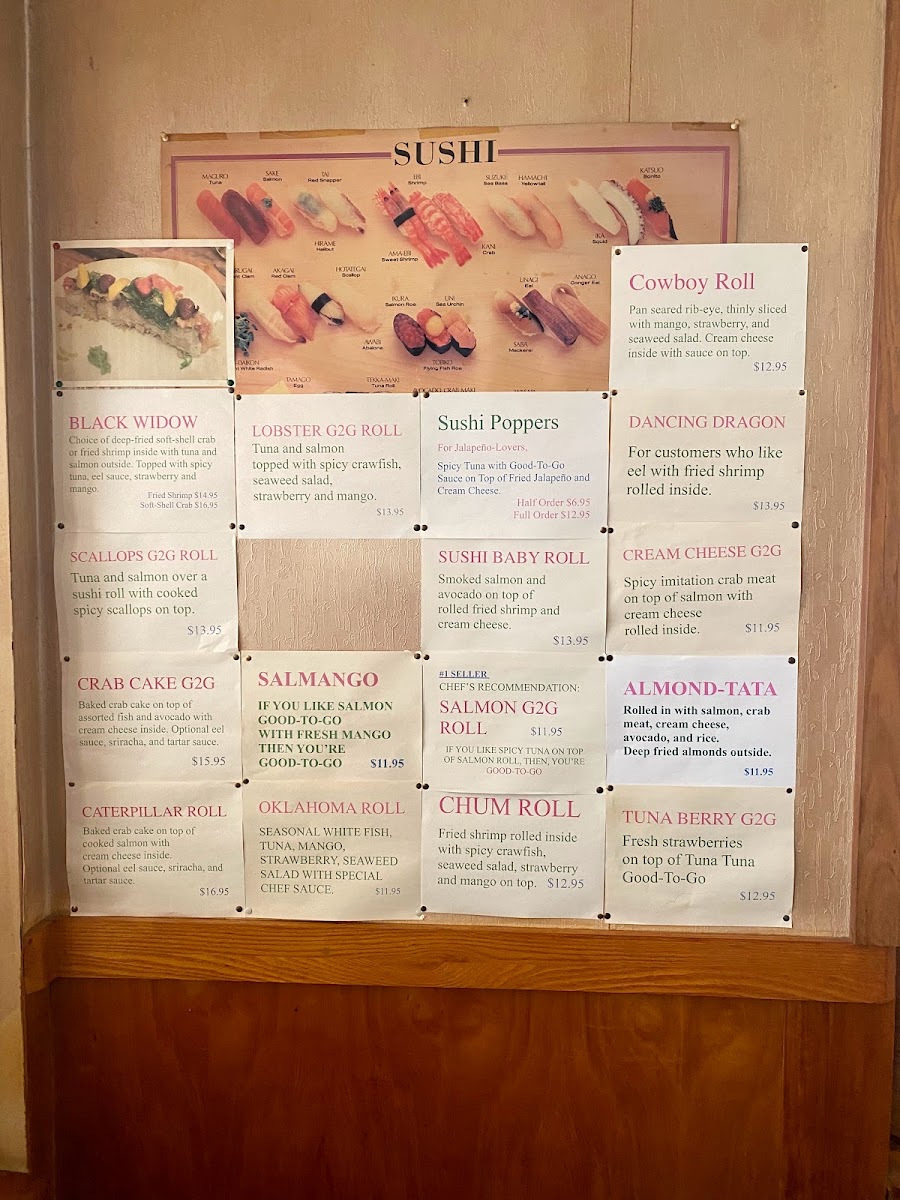 SUSHI
MAGURO
Tuna
SAKE
Salmon
TAI
Red Snapper
EBI
Shrimp
SUZUKI
Sea Bass
HAMACHI
Yellowtail
KATSUO
Bonito
HIRAME
Halibut
AMA-EBI
Sweet Shrimp
KANI
Crab
IKA
Squid
AKAGAI
Red Clam
HOTATEGAI
Scallop
IKURA
Salmon Roe
UNI
Sea Urchin
UNAGI
Eel
ANAGO
Conger Eel
AWABI
Abalone
SABA
Mackerel
-DAIKON
White Radish
TOBIKO
Flying Fish Roe
TAMAGO
Egg
TEKKA-MAKI
Tuna Roll
AVOCADO CRAB MAKI
Cowboy Roll
Pan seared rib-eye, thinly sliced
with mango, strawberry, and
seaweed salad. Cream cheese
inside with sauce on top.
$12.95
BLACK WIDOW
Choice of deep-fried soft-shell crab
or fried shrimp inside with tuna and
salmon outside. Topped with spicy
tuna, eel sauce, strawberry and
mango.
Fried Shrimp $14.95
Soft-Shell Crab $16.95
LOBSTER G2G ROLL
Tuna and salmon
topped with spicy crawfish,
seaweed salad,
strawberry and mango.
$13.95
Sushi Poppers
For Jalapeño-Lovers,
Spicy Tuna with Good-To-Go
Sauce on Top of Fried Jalapeño and
Cream Cheese.
Half Order $6.95
Full Order $12.95
DANCING DRAGON
For customers who like
eel with fried shrimp
rolled inside.
$13.95
SCALLOPS G2G ROLL
Tuna and salmon over a
sushi roll with cooked
spicy scallops on top.
$13.95
SUSHI BABY ROLL
Smoked salmon and
avocado on top of
rolled fried shrimp and
cream cheese.
$13.95
CREAM CHEESE G2G
Spicy imitation crab meat
on top of salmon with
cream cheese
rolled inside. $11.95
CRAB CAKE G2G
Baked crab cake on top of
assorted fish and avocado with
cream cheese inside. Optional eel
sauce, sriracha, and tartar sauce.
$15.95
SALMANGO
IF YOU LIKE SALMON
GOOD-TO-GO
WITH FRESH MANGO
THEN YOU'RE
GOOD-TO-GO $11.95
#1 SELLER
CHEF'S RECOMMENDATION:
SALMON G2G
ROLL $11.95
IF YOU LIKE SPICY TUNA ON TOP
OF SALMON ROLL, THEN, YOU'RE
GOOD-TO-GO
ALMOND-TATA
Rolled in with salmon, crab
meat, cream cheese,
avocado, and rice.
Deep fried almonds outside.
$11.95
CATERPILLAR ROLL
Baked crab cake on top of
cooked salmon with
cream cheese inside.
Optional eel sauce, sriracha, and
tartar sauce.
$16.95
OKLAHOMA ROLL
SEASONAL WHITE FISH,
TUNA, MANGO,
STRAWBERRY, SEAWEED
SALAD WITH SPECIAL
CHEF SAUCE. $11.95
CHUM ROLL
Fried shrimp rolled inside
with spicy crawfish,
seaweed salad, strawberry
and mango on top. $12.95
TUNA BERRY G2G
Fresh strawberries
on top of Tuna Tuna
Good-To-Go
$12.95